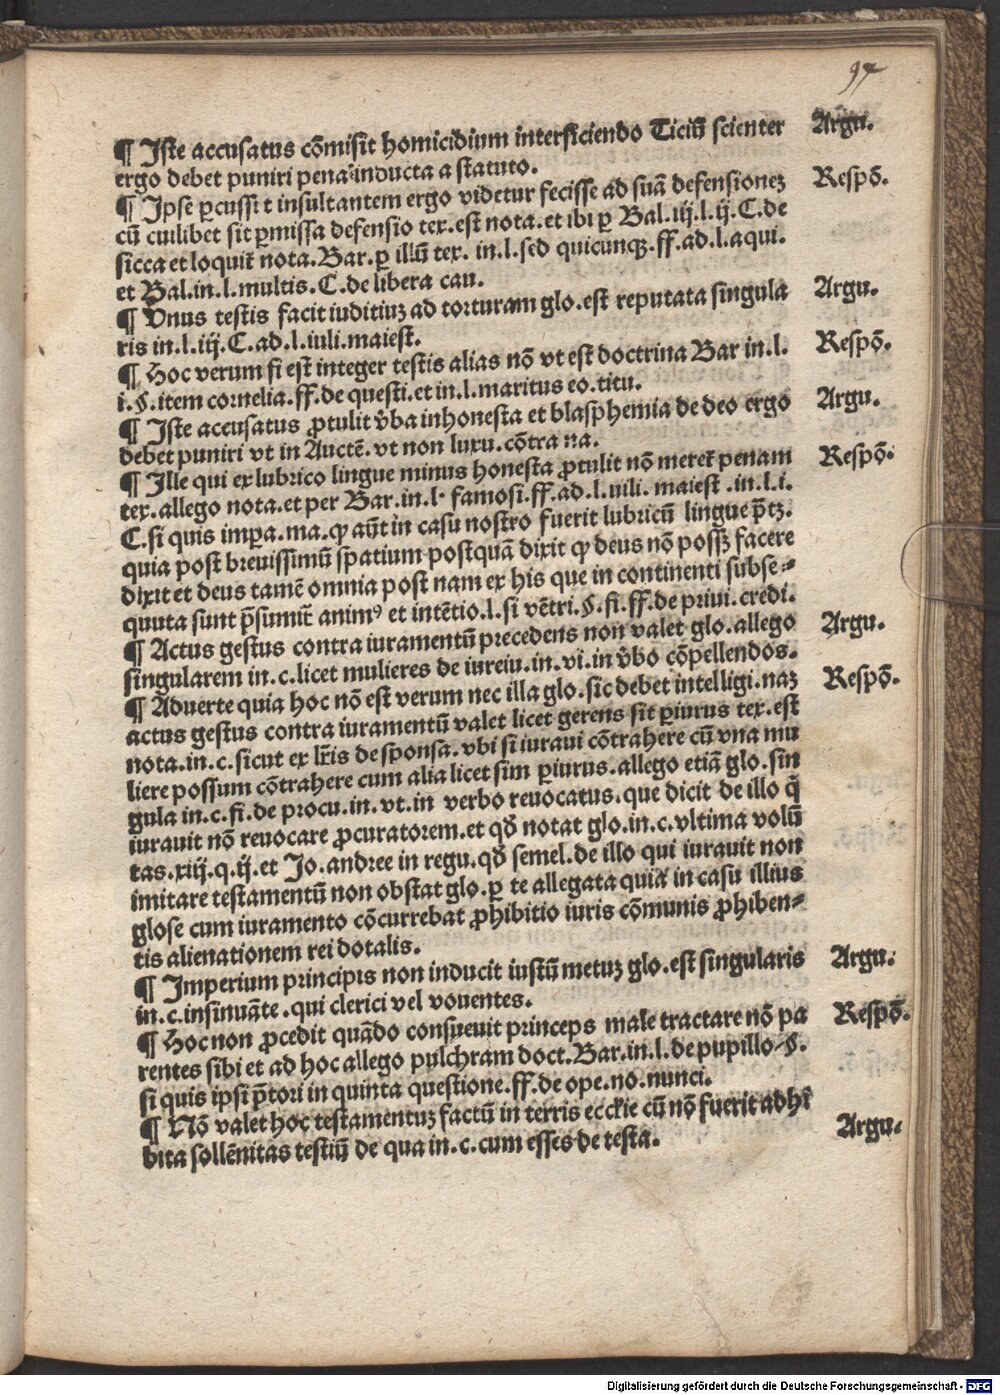 97
¶ Iste accusatus cōmisit homicidium interficiendo Ticiū scienter Argu.
ergo debet puniri pena inducta a statuto.
¶ Ipse ꝑcussit insultantem ergo videtur fecisse ad suā defensionez Respō.
cū cuilibet sit ꝑmissa defensio tex. est nota. et ibi ꝑ Bal. iij. l. ij. C. de
sicca et loquit᷑ nota. Bar. ꝑ illū tex. in. l. sed quicunqꝫ. ff. ad. l. aqui.
et Bal. in. l. multis. C. de libera cau.
¶ Vnus testis facit iuditiuz ad torturam glo. est reputata singula Argu.
ris in. l. iij. C. ad. l. iuli. maiest.
¶ Hoc verum si est integer testis alias nō vt est doctrina Bar in. l. Respō.
i. §. item cornelia. ff. de questi. et in. l. maritus eo. titu.
¶ Iste accusatus ꝓtulit v̄ba inhonesta et blasphemia de deo ergo Argu.
debet puniri vt in Auctē. vt non luxu. cōtra na.
¶ Ille qui ex lubrico lingue minus honesta ꝓtulit nō meret᷑ penam Respō.
tex. allego nota. et per Bar. in. l. famosi. ff. ad. l. uili. maiest. in. l. i.
C. si quis impꝑa. ma. ꝙ aūt in casu nostro fuerit lubricū lingue p̄tz.
quia post breuissimū spatium postquā dixit ꝙ deus nō possꝫ facere
dixit et deus tamē omnia post nam ex his que in continenti subse⸗
quuta sunt p̄sumit᷑ animꝰ et intētio. l. si vētri. §. fi. ff. de priui. credi.
¶ Actus gestus contra iuramentū precedens non valet glo. allego Argu.
singularem in. c. licet mulieres de iureiu. in. vi. in v̄bo cōpellendos.
¶ Aduerte quia hoc nō est verum nec illa glo. sic debet intelligi. naz Respō.
actus gestus contra iuramentū valet licet gerens sit ꝑiurus tex. est
nota. in. c. sicut ex lr̄is de sponsa. vbi si iuraui cōtrahere cū vna mu
liere possum cōtrahere cum alia licet sim ꝑiurus. allego etiā glo. sin
gula in. c. fi. de procu. in. vt. in verbo reuocatus. que dicit de illo q̄
iurauit nō reuocare ꝓcuratorem. et qđ notat glo. in. c. vltima volū
tas. xiij. q. ij. et Jo. andree in regu. qđ semel. de illo qui iurauit non
imitare testamentū non obstat glo. ꝑ te allegata quia in casu illius
glose cum iuramento cōcurrebat ꝓhibitio iuris cōmunis ꝓhiben⸗
tis alienationem rei dotalis.
¶ Imperium principis non inducit iustū metuz glo. est singularis Argu.
in. c. insinuāte. qui clerici vel vouentes.
¶ Hoc non ꝓcedit quādo consueuit princeps male tractare nō pa Respō.
rentes sibi et ad hoc allego pulchram doct. Bar. in. l. de pupillo §.
si quis ipsi p̄tori in quinta questione. ff. de ope. no. nunci.
¶ Nō valet hoc testamentuz factū in terris ecclēie cū nō fuerit adhi
bita sollēnitas testiū de qua in. c. cum esses de testa. Argu.
Digitalisierung gefördert durch die Deutsche Forschungsgemeinschaft - DFG